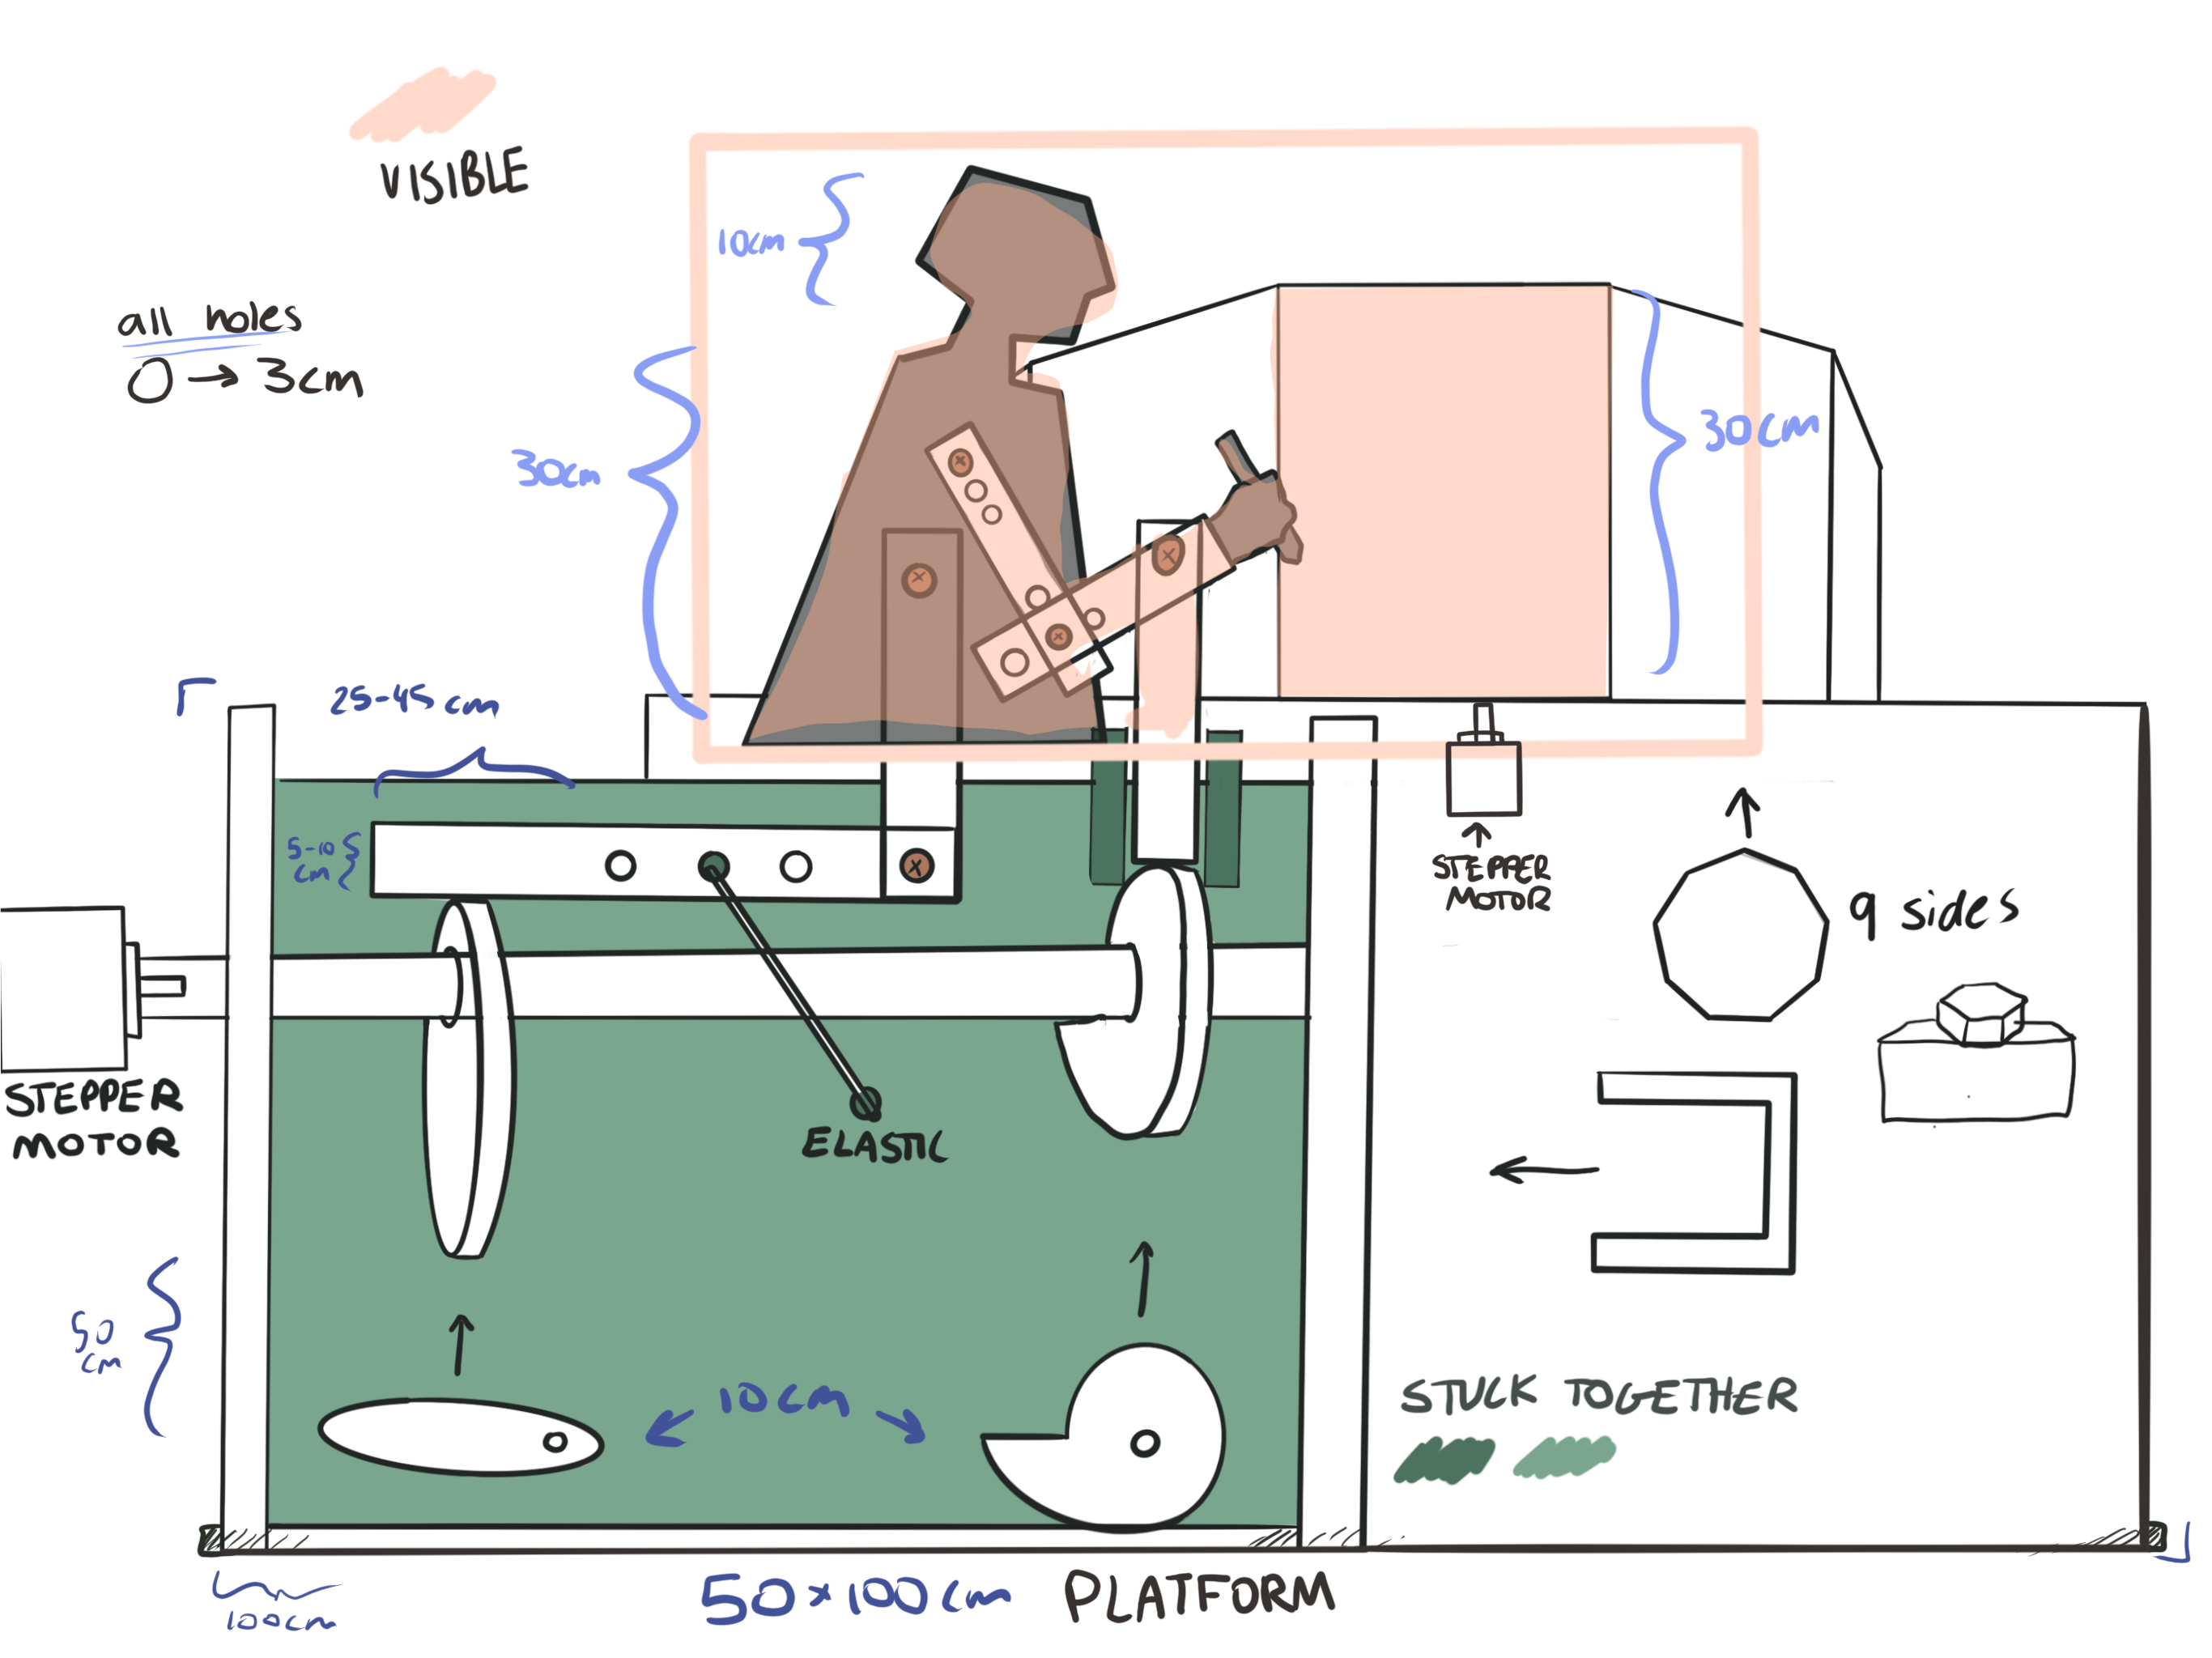 VISIBLE
10cm
all holes
O → 3cm
30cm
30cm
25-45 cm
5-10
cm
STEPPER
MOTOR
9 sides
STEPPER
MOTOR
ELASTIC
50
cm
10cm
STUCK TOGETHER
100cm
50x100cm PLATFORM